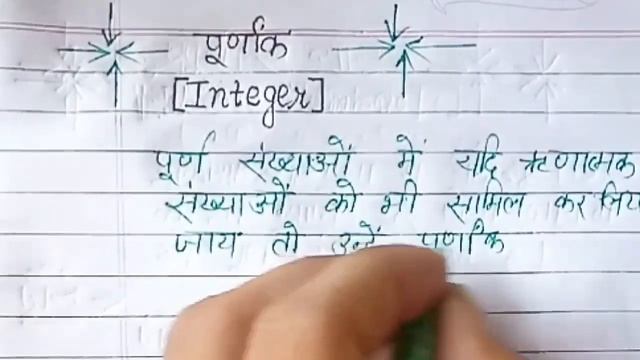 पूर्णांक
[Integer]
पूर्ण संख्याओं में यदि ऋणात्मक
संख्याओं को भी सामिल कर लिय
जाय तो उन्हें पूर्णांक